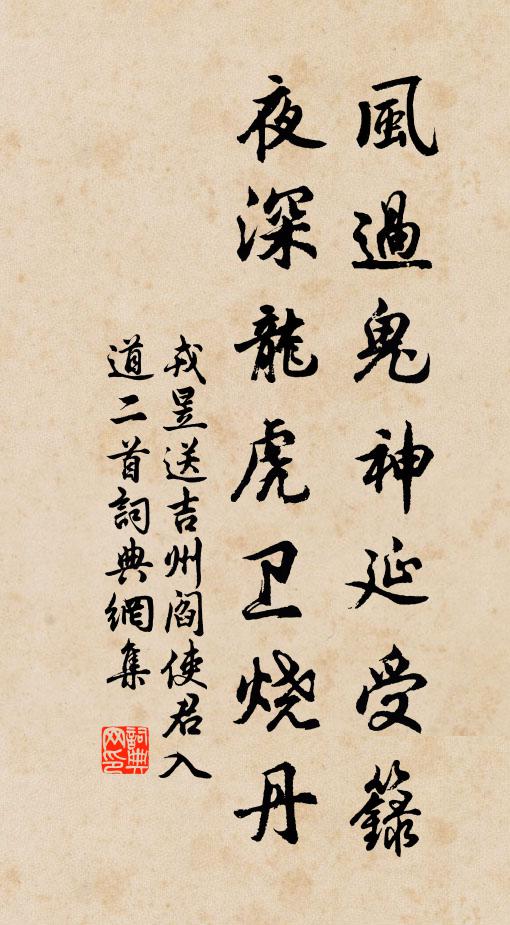 風過鬼神延受籙
夜深龍虎卫烧丹
戎昱送吉州阎使君入
道二首詞典網集
詞典
网印